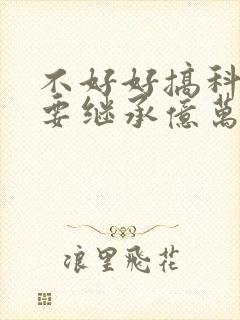 不好好搞科
要继承億萬
浪里飛花